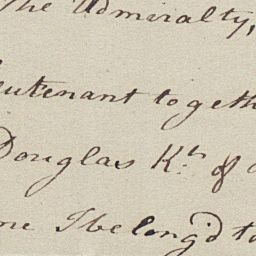 The Admiralty,
eutenant togeth
Douglas Kt. of
me I belong'd to